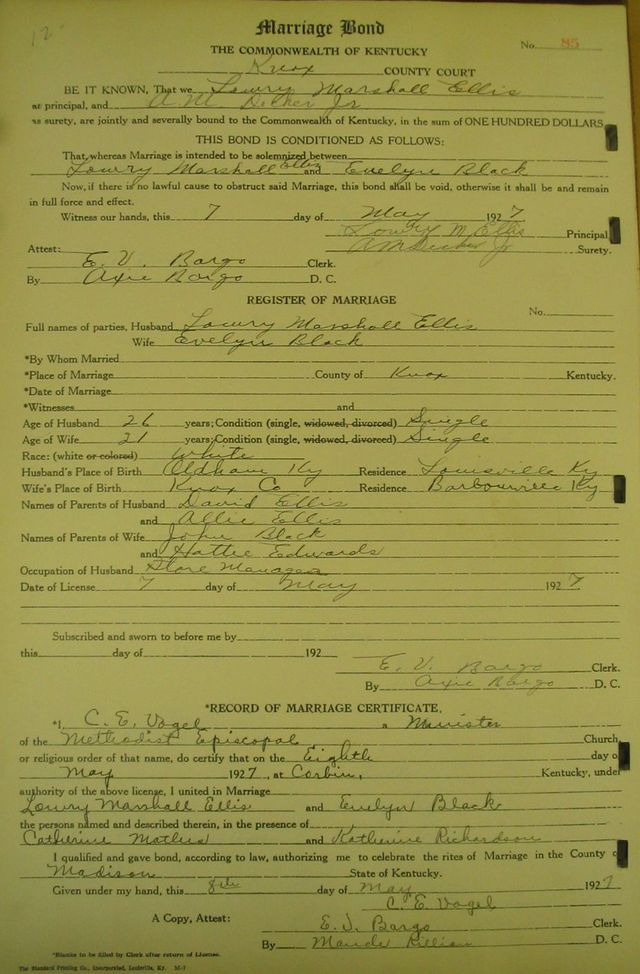 12
Marriage Bond
No. 85
THE COMMONWEALTH OF KENTUCKY
Knox COUNTY COURT
BE IT KNOWN, That we Lowry Marshall Ellis
as principal, and A. M. Decker Jr
as surety, are jointly and severally bound to the Commonwealth of Kentucky, in the sum of ONE HUNDRED DOLLARS
THIS BOND IS CONDITIONED AS FOLLOWS:
That, whereas Marriage is intended to be solemnized between
Lowry Marshall Ellis and Evelyn Black
Now, if there is no lawful cause to obstruct said Marriage, this bond shall be void, otherwise it shall be and remain
in full force and effect.
Witness our hands, this 7 day of May 1927
Lowry M. Ellis Principal
A M Decker Jr Surety.
Attest:
E. V. Bargo Clerk.
By Axie Bargo D. C.
REGISTER OF MARRIAGE
No.
Full names of parties, Husband Lowry Marshall Ellis
Wife Evelyn Black
*By Whom Married
*Place of Marriage County of Knox Kentucky.
*Date of Marriage
*Witnesses and
Age of Husband 26 years; Condition (single, widowed, divorced) Single
Age of Wife 21 years; Condition (single, widowed, divorced) Single
Race: (white or colored) White
Husband's Place of Birth Oldham Ky Residence Louisville Ky
Wife's Place of Birth Knox Co Residence Barbourville Ky
Names of Parents of Husband David Ellis
and Allie Ellis
Names of Parents of Wife John Black
and Hattie Edwards
Occupation of Husband Store Manager
Date of License 7 day of May 1927
Subscribed and sworn to before me by
this day of 192
E. V. Bargo Clerk.
By Axie Bargo D. C.
*RECORD OF MARRIAGE CERTIFICATE.
*I, C. E. Vogel a Minister
of the Methodist Episcopal Church,
or religious order of that name, do certify that on the Eighth day o
May 1927, at Corbin, Kentucky, under
authority of the above license, I united in Marriage
Lowry Marshall Ellis and Evelyn Black
the persons named and described therein, in the presence of
Catherine and Katherine Richardson
I qualified and gave bond, according to law, authorizing me to celebrate the rites of Marriage in the County o
Madison State of Kentucky.
Given under my hand, this 8th day of May 1927
C. E. Vogel
A Copy, Attest: E. V. Bargo Clerk.
By Maude Killian D. C.
*Blanks to be filled by Clerk after return of License.
The Standard Printing Co., Incorporated, Louisville, Ky. M-7